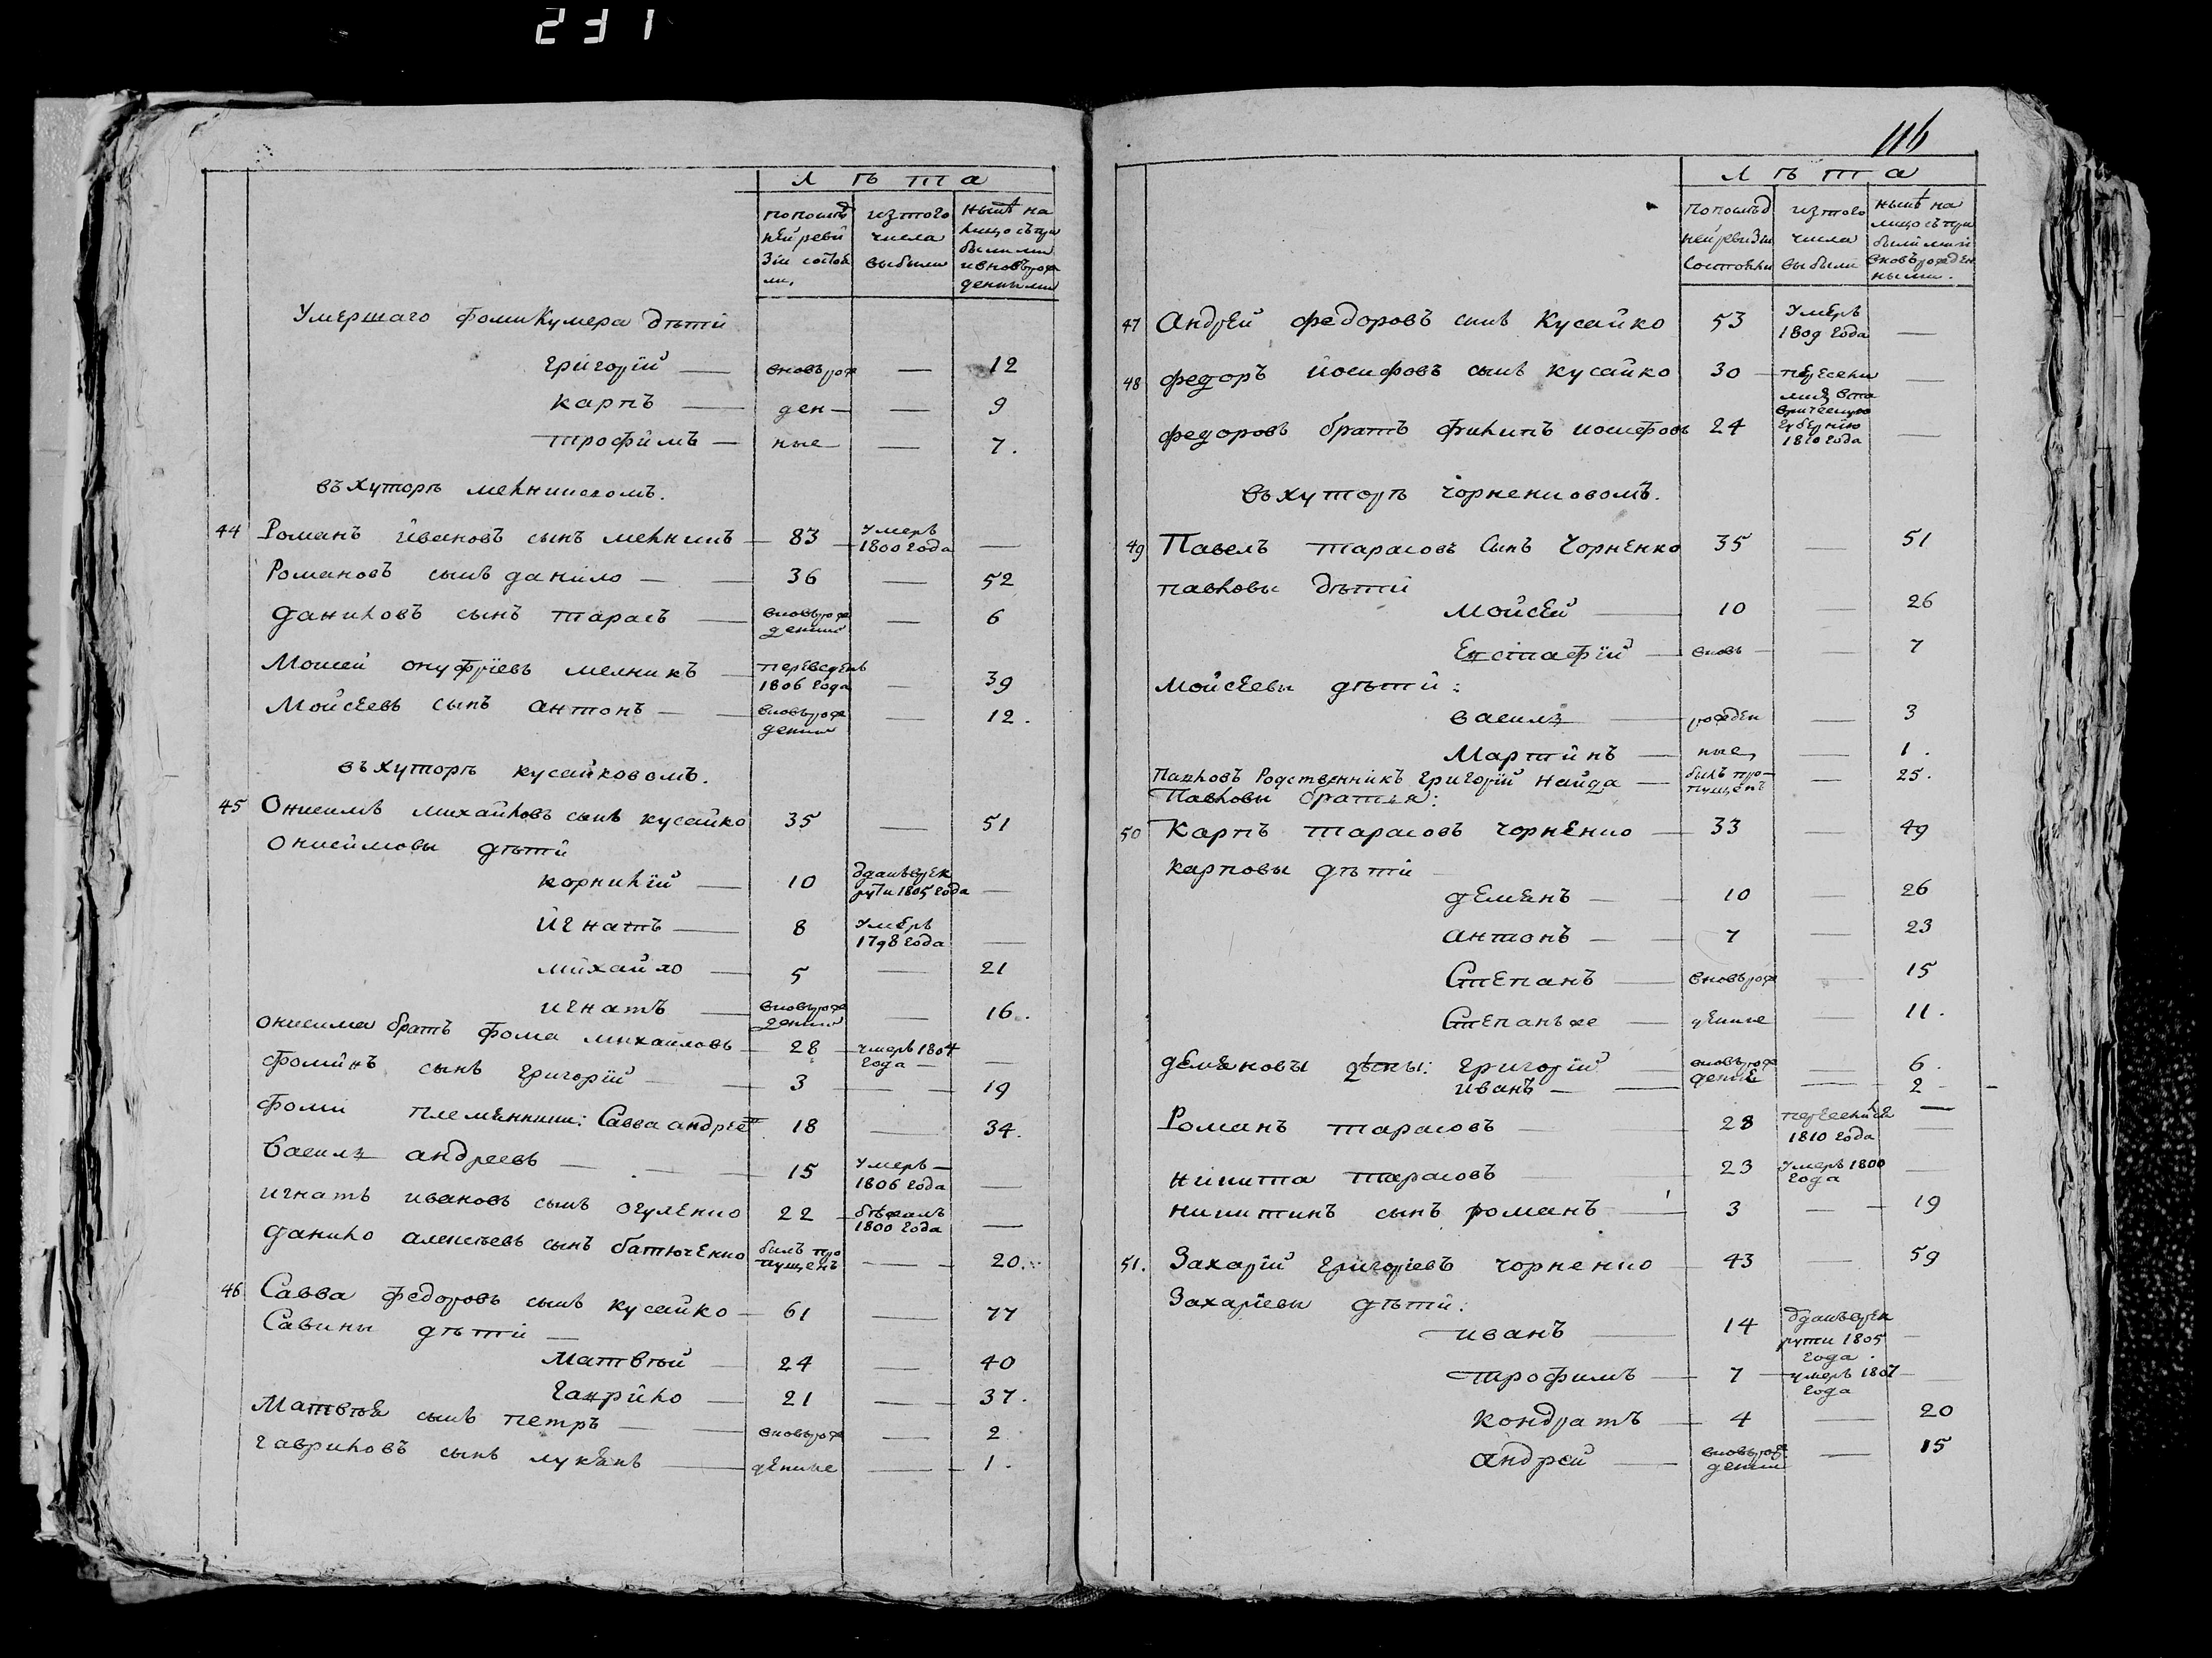 231
Лѣта
попослѣд изтого нынѣ на
ней реви числа лицо съпри
зіи состоя выбыли былыми
ли, ивновьрож
денными
Умершаго Фоми Кумера дѣти
Григорій — вновьрож — 12
Карпъ — ден — — 9
Трофимъ — ные — 7.
въ Хуторѣ мелниковомъ.
44 Романъ Ивановъ сынъ мелникъ — 83 — умеръ 1800 года —
Романовъ сынъ данило — — 36 — 52
даниловъ сынъ тарасъ — вновьрож денны — 6
Моисей онуфріевъ мелникъ — переведенъ 1806 года — 39
Мойсѣевъ сынъ антонъ — — вновьрож денны — 12.
въ хуторѣ кусайковомъ.
45 Онисимъ михайловъ сынъ кусайко 35 — 51
Онисимовы дѣти
корнилій — 10 одданъврек рути 1805 года —
Игнатъ — 8 умеръ 1798 года —
михайло — 5 — 21
игнатъ — вновьрож денны — 16.
онисима братъ фома михаиловъ — 28 — умеръ 1804 года — —
фоминъ сынъ григорій — — 3 — — 19
фоми племѣнники: Савва андрѣе 18 — 34.
Василь андреевъ — — — 15 умеръ — 1806 года —
игнатъ ивановъ сынъ огуленко 22 — бѣжалъ 1800 года —
данило алексѣевъ сынъ батюченко былъ про пущенъ — — 20.
46 Савва федоровъ сынъ кусайко — 61 — 77
Савины дѣти —
Матвѣй — 24 — 40
Гаврило — 21 — — 37.
Матвѣя сынъ петръ — — вновьрож — 2
гавриловъ сынъ лукянъ — дѣнные — 1.
116
Лѣта
попослѣд изтого нынѣ на
ней ревизіи числа лицо съпри
состояли выбыли былыми и
вновьрожден
ными.
47 Андрей федоровъ сынъ Кусайко 53 Умеръ 1809 года —
48 федоръ йосифовъ сынъ кусайко 30 — пересели лись вта врическую губернію 1810 года —
федоровъ братъ филипъ иосифовъ 24 —
въ хуторѣ чорненковомъ.
49 Павелъ тарасовъ Сынъ Чорненко 35 — 51
павловы дѣти
Мойсѣй — 10 — 26
Евстафій — вновь — — 7
Мойсѣевы дѣти:
василь — рожден — 3
Мартинъ — ные — 1.
Павловъ Родственникъ григорій найда — былъ про— пущенъ — 25.
Павловы братья:
50 Карпъ тарасовъ чорненко — 33 49
карповы дѣти
демянъ — — 10 — 26
антонъ — — 7 — 23
Степанъ — вновьрож — 15
Степанъже — дѣнные — 11.
демяновы дѣти: Григорій — вновьрож — 6.
иванъ — — денные — 2 —
Романъ тарасовъ — 28 переселился 1810 года —
никита тарасовъ — 23 умеръ 1800 года —
никитинъ сынъ романъ — 3 — — 19
51. Захарій григоріевъ чорненко — 43 — 59
Захаріевы дѣти:
иванъ — 14 одданъврек рути 1805 года.
трофимъ — 7 — умеръ 1807 года —
кондратъ — 4 — 20
андрей — вновьрож денны — 15